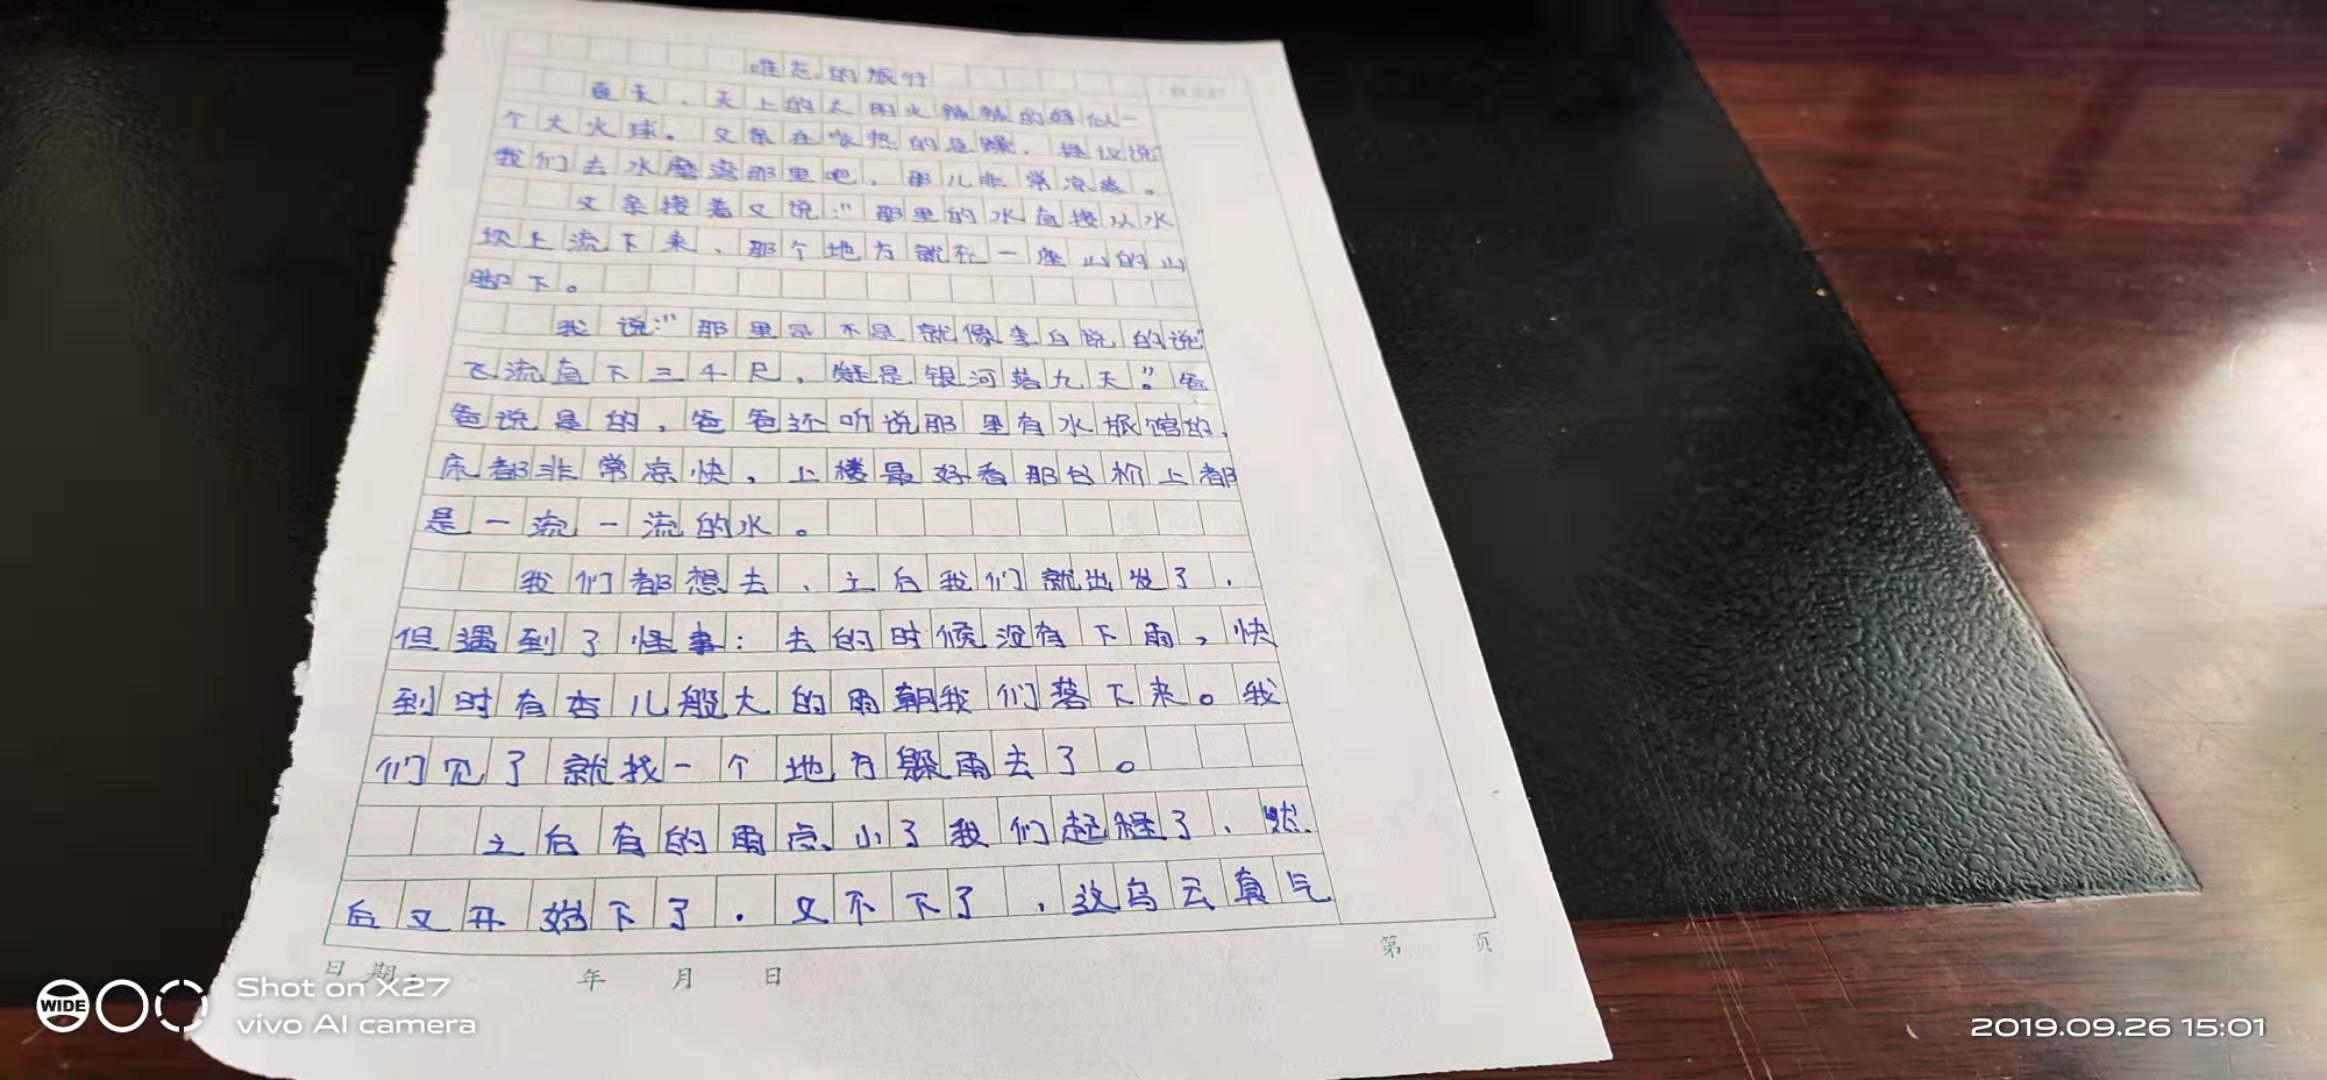 难忘的旅行
夏天，天上的太阳火辣辣的好似一
个大火球。父亲在家热的急躁，提议说
我们去水磨湾那里吧，那儿非常凉爽。
父亲接着又说：“那里的水直接从水
坝上流下来，那个地方就在一座山的山
脚下。
我说：“那里是不是就像李白说的说“
飞流直下三千尺，疑是银河落九天”。爸
爸说是的，爸爸还听说那里有水旅馆的，
床都非常凉快，上楼最好看那台阶上都
是一流一流的水。
我们都想去，之后我们就出发了，
但遇到了怪事：去的时候没有下雨，快
到时有杏儿般大的雨朝我们落下来。我
们见了就找一个地方躲雨去了。
之后有的雨点小了我们起程了，然
后又开始下了，又不下了，这乌云真气
日期： 年 月 日
第 页
WIDE
Shot on X27
vivo AI camera
2019.09.26 15:01